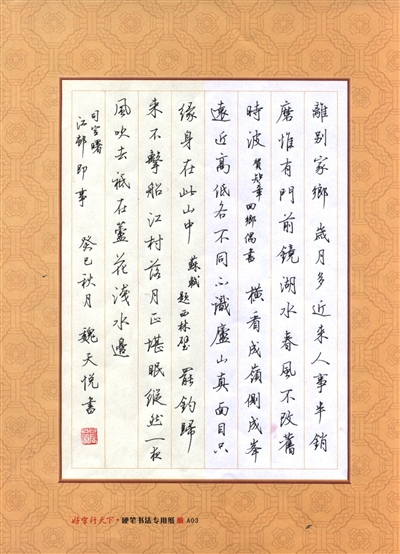 離别家鄉歲月多近来人事半銷
磨惟有門前鏡湖水春風不改舊
時波 賀知章 回鄉偶書 橫看成嶺側成峯
遠近高低各不同不識廬山真面目只
緣身在此山中 蘇軾 題西林壁 罷釣歸
来不擊船江村落月正堪眠縱然一夜
風吹去祗在蘆花淺水邊
司空曙
江邨即事 癸巳秋月 魏天悦書
好字行天下·硬笔书法专用纸 A03